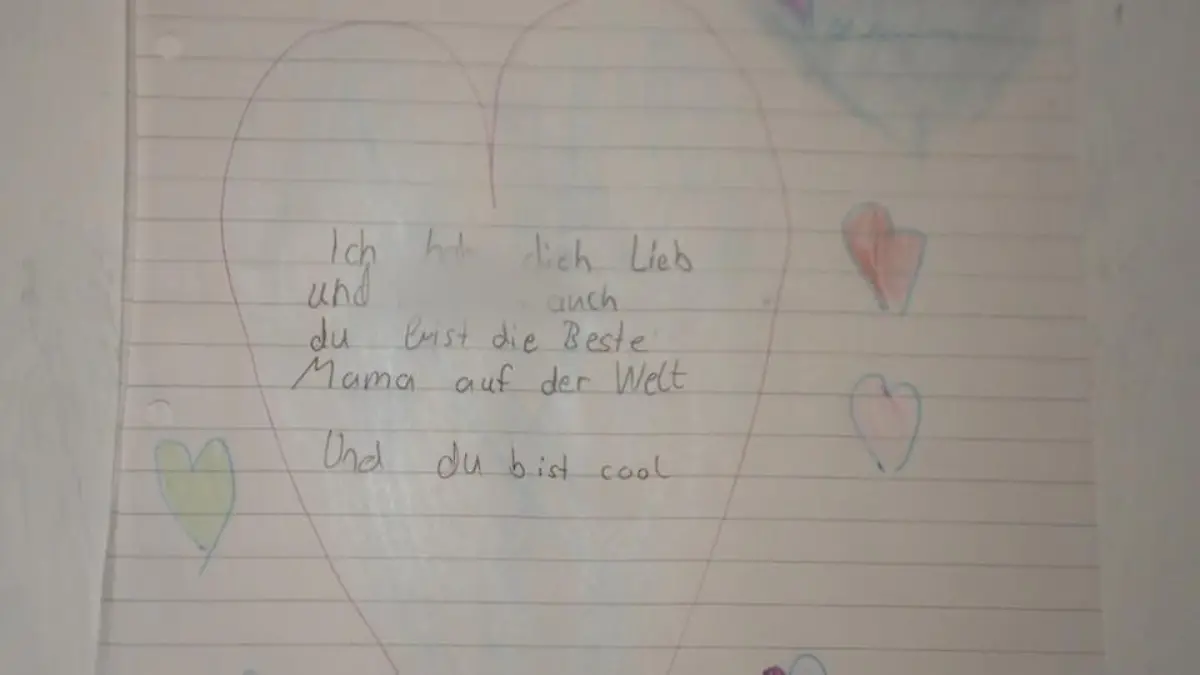 Ich dich Lieb
und auch
du bist die Beste
Mama auf der Welt
Und du bist cool